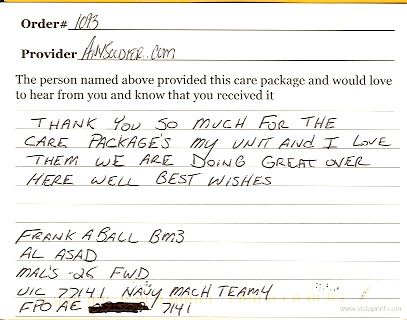 Order# 1093
Provider AnySoldier.com
The person named above provided this care package and would love
to hear from you and know that you received it
THANK YOU SO MUCH FOR THE
CARE PACKAGE'S MY UNIT AND I LOVE
THEM WE ARE DOING GREAT OVER
HERE WELL BEST WISHES
FRANK A BALL BM3
AL ASAD
MAL'S -26 FWD
UIC 77141 NAVY MACH TEAM4
FPO AE 7141
www.vistaprint.com